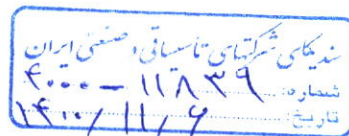 سندیکای شرکتهای تأسیساتی و صنعتی ایران
شماره: ۱۱۸۳۹ - ۴۰۰۰
تاریخ: ۱۴۰۰/۱۱/۶